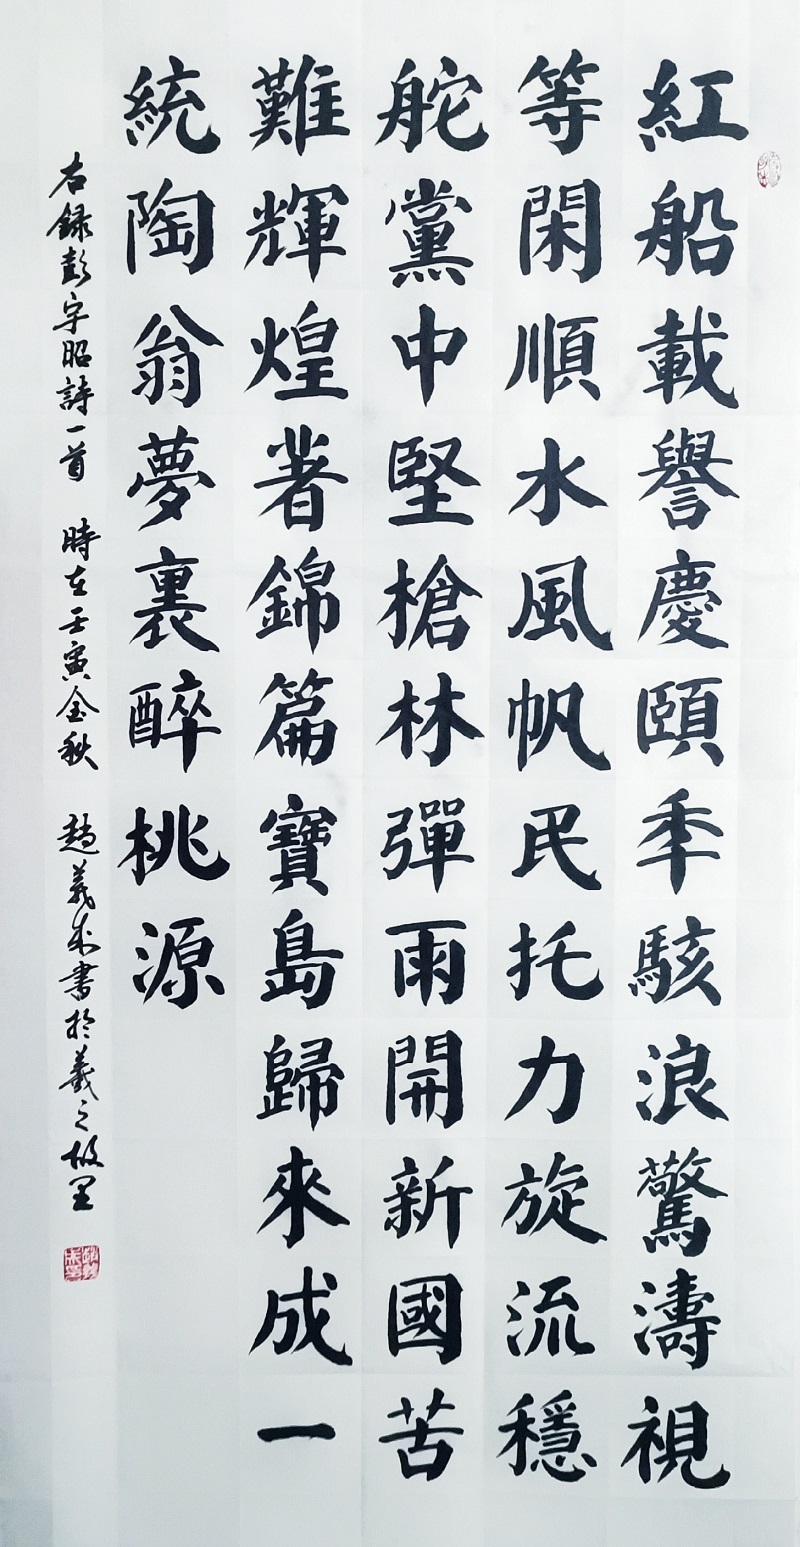 紅船載譽慶頤季駭浪驚濤視
等閑順水風帆民托力旋流穩
舵黨中堅槍林彈雨開新國苦
難輝煌著錦篇寶島歸來成一
統陶翁夢裏醉桃源
右録彭宇昭詩一首 時在壬寅金秋 趙義成書於羲之故里